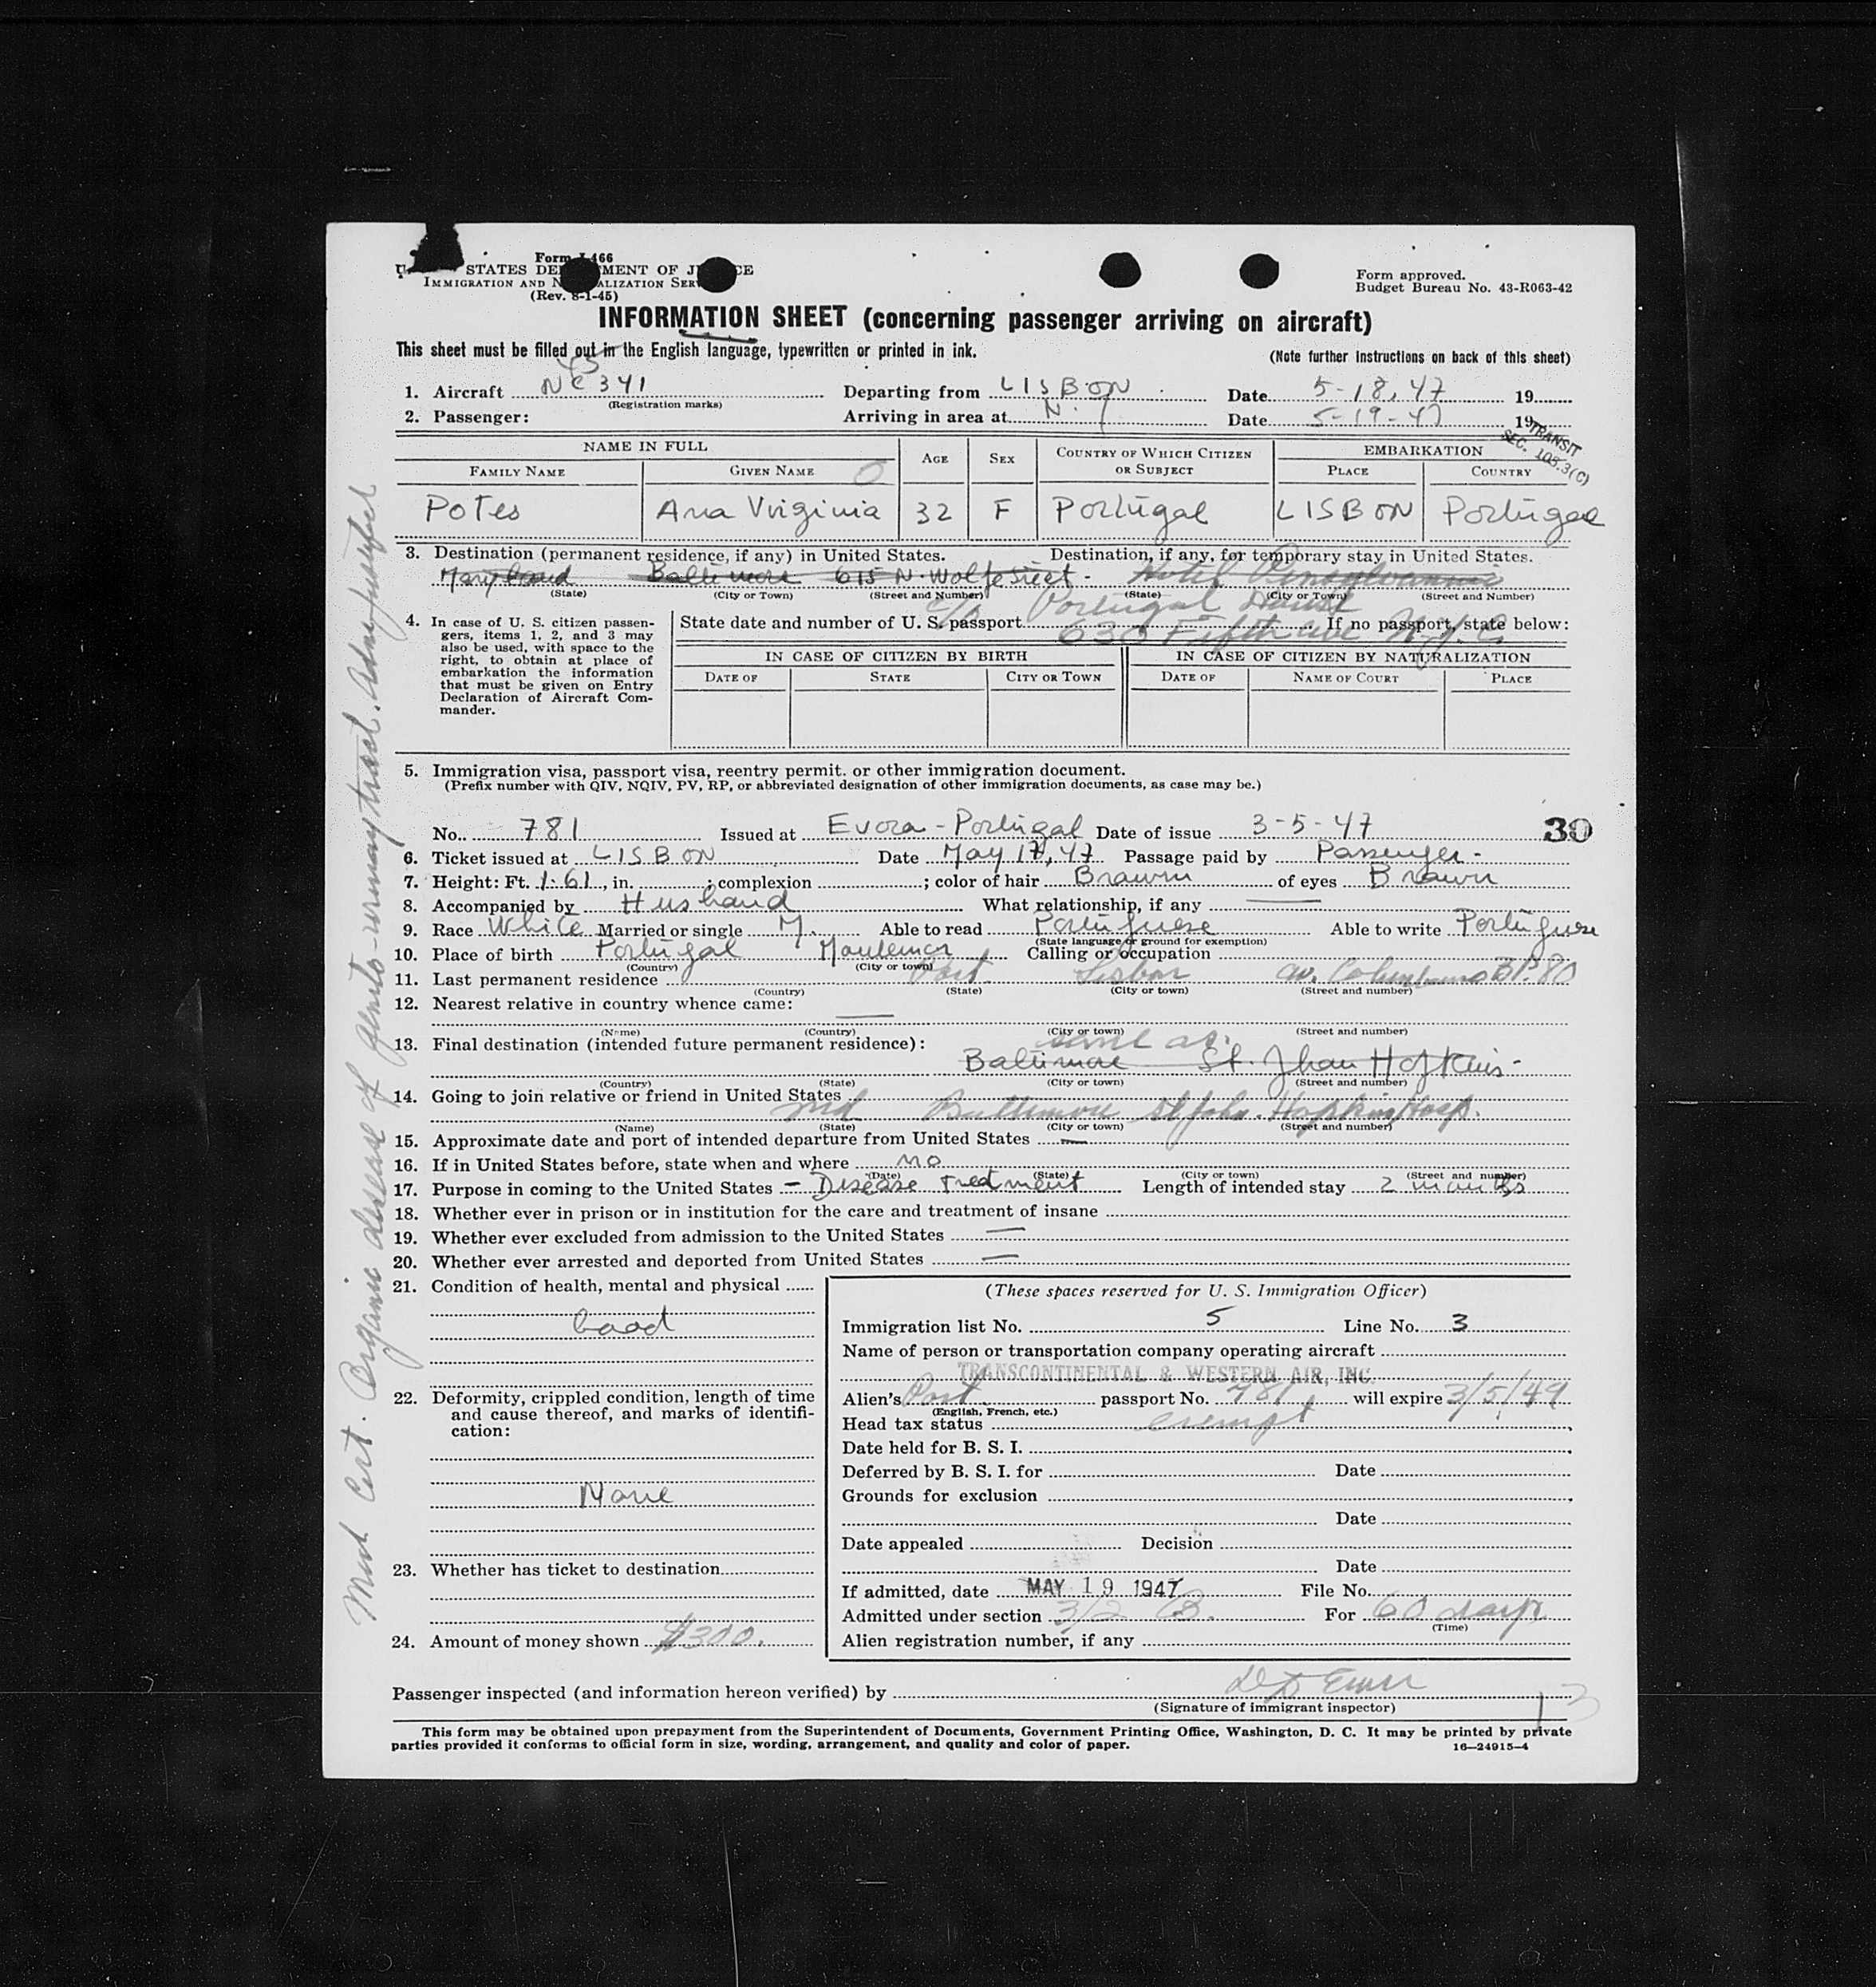 Form I-466
STATES DE MENT OF J CE
IMMIGRATION AND N ALIZATION SER
(Rev. 8-1-45)
Form approved.
Budget Bureau No. 43-R063-42
INFORMATION SHEET (concerning passenger arriving on aircraft)
This sheet must be filled out in the English language, typewritten or printed in ink.
(Note further instructions on back of this sheet)
45
1. Aircraft NC 341 Departing from LISBON Date 5-18,47 19
(Registration marks)
2. Passenger: Arriving in area at N.Y Date 5-19-47 19
TRANSIT
SEC. 105.3(C)
NAME IN FULL AGE SEX COUNTRY OF WHICH CITIZEN OR SUBJECT EMBARKATION
FAMILY NAME GIVEN NAME PLACE COUNTRY
Potes Ana Virginia 32 F Portugal LISBON Portugal
3. Destination (permanent residence, if any) in United States. Destination, if any, for temporary stay in United States.
Maryland Baltimore 615 N. Wolfe Street - Hotel Pensylvannia
(State) (City or Town) (Street and Number) (State) (City or Town) (Street and Number)
c/o Portugal House
4. In case of U. S. citizen passen-
gers, items 1, 2, and 3 may
also be used, with space to the
right, to obtain at place of
embarkation the information
that must be given on Entry
Declaration of Aircraft Com-
mander.
State date and number of U. S. passport If no passport, state below:
630 Fifth Ave N.Y.C.
IN CASE OF CITIZEN BY BIRTH IN CASE OF CITIZEN BY NATURALIZATION
DATE OF STATE CITY OR TOWN DATE OF NAME OF COURT PLACE
5. Immigration visa, passport visa, reentry permit. or other immigration document.
(Prefix number with QIV, NQIV, PV, RP, or abbreviated designation of other immigration documents, as case may be.)
No. 781 Issued at Evora - Portugal Date of issue 3-5-47
30
6. Ticket issued at LISBON Date May 17, 47 Passage paid by Passenger -
7. Height: Ft. 1.61, in. ; complexion ; color of hair Brawn of eyes Brawn
8. Accompanied by Husband What relationship, if any —
9. Race White Married or single M. Able to read Portuguese Able to write Portuguese
(State language or ground for exemption)
10. Place of birth Portugal Calling or occupation
(Country) (City or town)
11. Last permanent residence Port Lisbon av. 80
(Country) (State) (City or town) (Street and number)
12. Nearest relative in country whence came: —
(Name) (Country) (City or town) (Street and number)
13. Final destination (intended future permanent residence): same as.
Baltimore St. Jhon Hopkins -
(Country) (State) (City or town) (Street and number)
14. Going to join relative or friend in United States
Md Baltimore St John. Hopkins Hosp.
(Name) (State) (City or town) (Street and number)
15. Approximate date and port of intended departure from United States —
16. If in United States before, state when and where no
(Date) (State) (City or town) (Street and number)
17. Purpose in coming to the United States - Disease Tredment Length of intended stay 2 months
18. Whether ever in prison or in institution for the care and treatment of insane
19. Whether ever excluded from admission to the United States —
20. Whether ever arrested and deported from United States —
21. Condition of health, mental and physical
Good
22. Deformity, crippled condition, length of time
and cause thereof, and marks of identifi-
cation:
None
23. Whether has ticket to destination
24. Amount of money shown $300.
(These spaces reserved for U. S. Immigration Officer)
Immigration list No. 5 Line No. 3
Name of person or transportation company operating aircraft
TRANSCONTINENTAL & WESTERN AIR, INC.
Alien's Port passport No. 781 will expire 3/5/49
(English, French, etc.)
Head tax status exempt
Date held for B. S. I.
Deferred by B. S. I. for Date
Grounds for exclusion
Date
Date appealed Decision
Date
If admitted, date MAY 19 1947 File No.
Admitted under section 3/2 B. For 60 days
(Time)
Alien registration number, if any
Passenger inspected (and information hereon verified) by
(Signature of immigrant inspector)
13
This form may be obtained upon prepayment from the Superintendent of Documents, Government Printing Office, Washington, D. C. It may be printed by private
parties provided it conforms to official form in size, wording, arrangement, and quality and color of paper.
16—24915-4
Med Cert. Organic disease of genito-urinary tract.